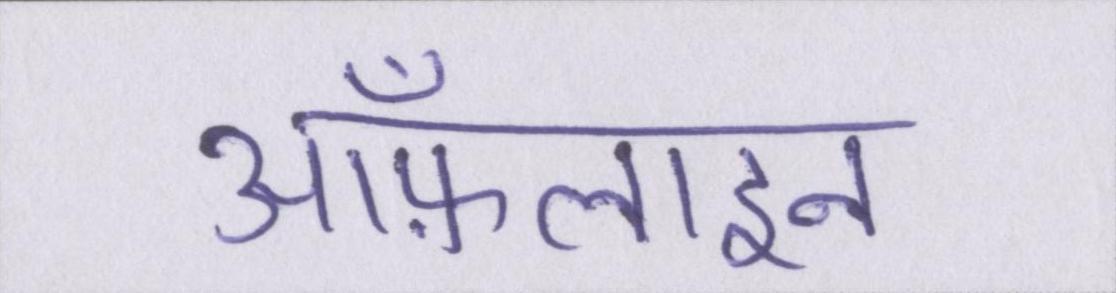 ऑफ़लाइन